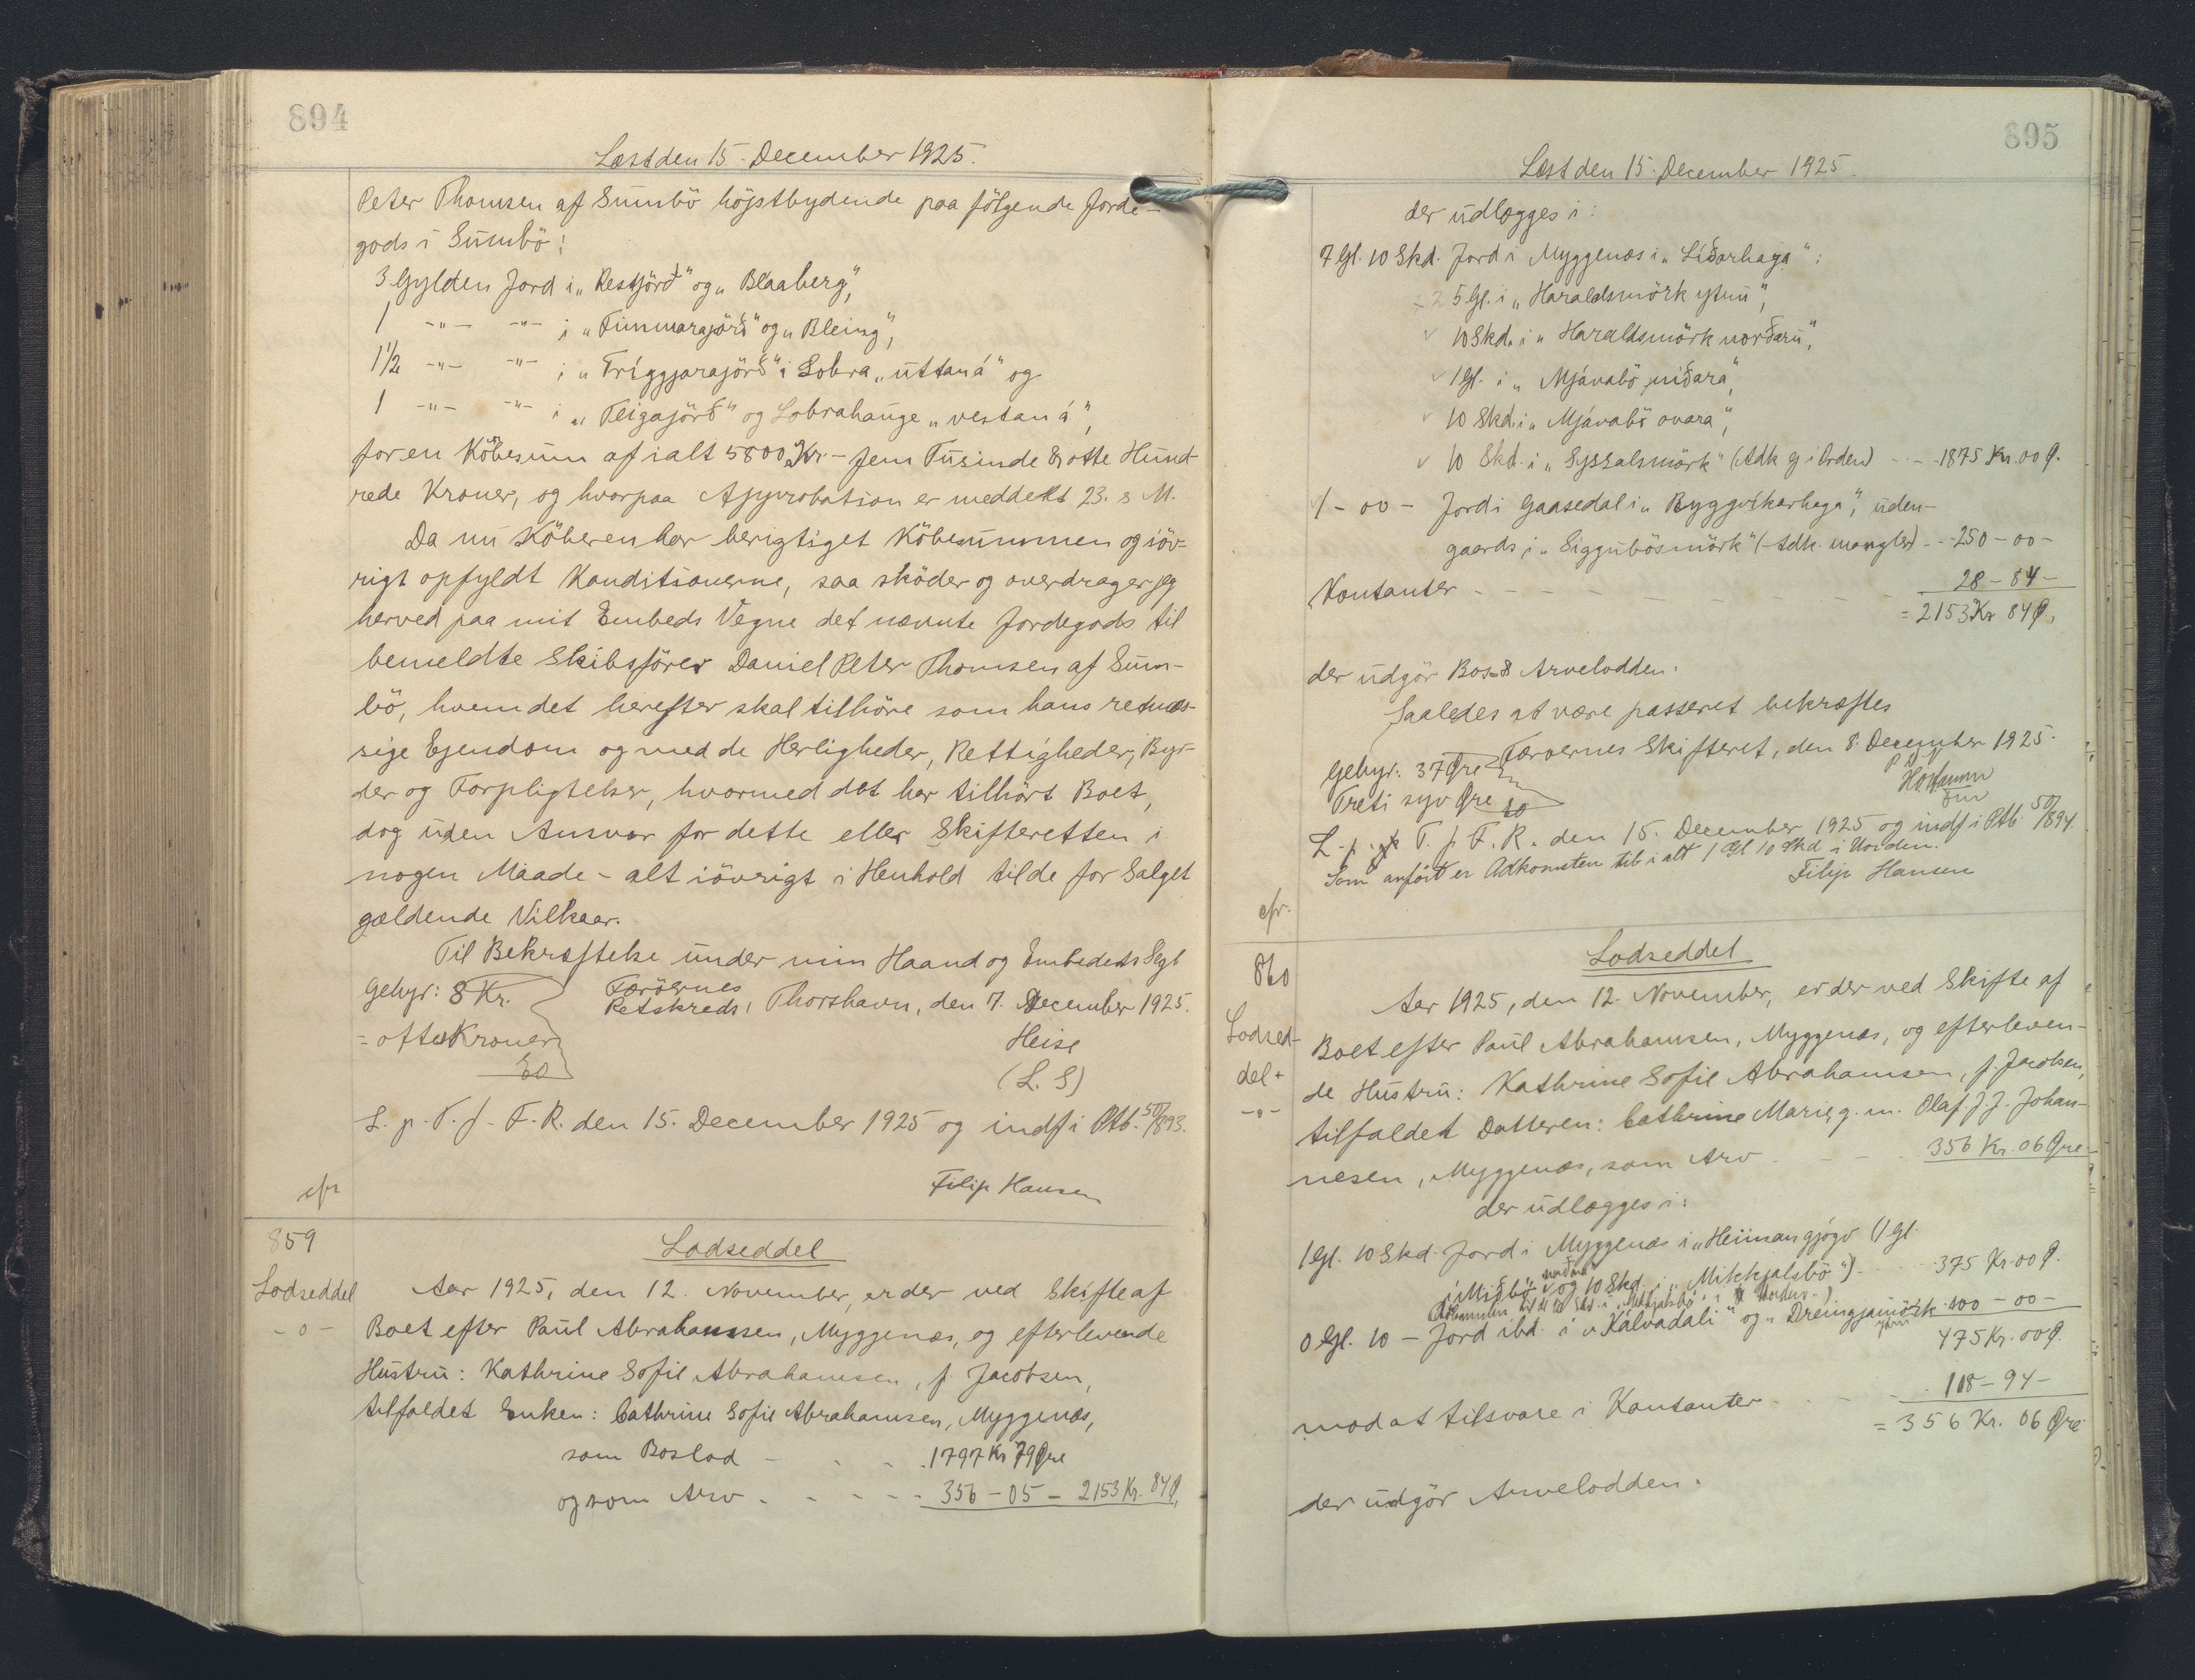 894
Læst den 15. December 1925.
Peter Thomsen af Sumbö höjstbydende paa fölgende Jorde-
gods i Sumbö:
3 Gylden Jord i „Restjörð" og „Blaaberg",
1 -"- -"- i „Timmarajörð" og „Bleing",
1 1/2 -"- -"- i „Tríggjarajörð" i Lobra „uttaná" og
1 -"- -"- i „Teigajörð" og Lobrahauge „vestaná",
for en Köbesum af ialt 5800 Kr. - fem Tusinde & otte Hund-
rede Kroner, og hvorpaa Approbation er meddelt 23. s. M.
Da nu Köberen har berigtiget Köbesummen og iöv-
rigt opfyldt Konditionerne, saa sköder og overdrager jeg
herved paa mit Embeds Vegne det nævnte Jordegods til
bemeldte Skibsförer Daniel Peter Thomsen af Sum-
bö, hvem det herefter skal tilhöre som hans retmæs-
sige Ejendom og med de Herligheder, Rettigheder, Byr-
der og Forpligtelser, hvormed det har tilhört Boet,
dog uden Ansvar for dette eller Skifteretten i
nogen Maade - alt iövrigt i Henhold til de for Salget
gældende Vilkaar.
Til Bekræftelse under min Haand og Embedets Segl
Gebyr: 8 Kr.
= otte Kroner
Færöernes
Retskreds, Thorshavn, den 7. December 1925.
Heise
(L. S)
L. p. T. f. F. R. den 15. December 1925 og indf i Ptb. 50/893.
Filip Hansen
cfr
859
Lodseddel
- o -
Lodseddel
Aar 1925, den 12. November, er der ved Skifte af
Boet efter Paul Abrahamsen, Myggenæs, og efterlevende
Hustru: Kathrine Sofie Abrahamsen, f. Jacobsen,
tilfaldet Enken: Cathrine Sofie Abrahamsen, Myggenæs,
som Boslod - - - 1797 Kr 79 Øre
og som Arv - - - - - 356 - 05 - 2153 Kr. 84 Ø.
895
Læst den 15. December 1925.
der udlægges i:
7 Gl. 10 Skd. Jord i Myggenæs i „Líðarhaga":
5 Gl. i „Haraldsmörk ytru",
10 Skd. i „Haraldsmörk norðaru",
1 Gl. i „Mjávabö niðara",
10 Skd. i „Mjávabö ovara",
10 Skd. i „Syssalsmörk" (Adk ej i Orden) - - - 1875 Kr. 00 Ø.
1 - 00 - Jord i Gaasedal i „Byggvíkarhaga", uden-
gaards i „Siggubösmörk" (Adk. mangler) - - 250 - 00 -
Kontanter - - - - - - 28 - 84 -
= 2153 Kr 84 Ø.
der udgör Bos & Arvelodden.
Saaledes at være passeret bekræftes
Gebyr: 37 Øre
Treti syv Øre
Færøernes Skifteret, den 8. December 1925.
L. p. T. f F. R. den 15. December 1925 og indf i Ptb. 50/894.
Som anført er Adkomsten til i alt 1 Gl 10 Skd i Uorden.
Filip Hansen
cfr.
860
Lodsed-
del.
- o -
Lodseddel
Aar 1925, den 12. November, er der ved Skifte af
Boet efter Paul Abrahamsen, Myggenæs, og efterleven-
de Hustru: Kathrine Sofie Abrahamsen, f. Jacobsen,
tilfaldet Datteren: Cathrine Marie, g. m. Olaf J. J. Johan-
nesen, Myggenæs, som Arv - - - 356 Kr. 06 Øre
der udlægges i:
1 Gl. 10 Skd. Jord i Myggenæs i „Heimangjógv (1 Gl.
i Miðbö og 10 Skd. i „Mikkjalsbö") - - 375 Kr. 00 Ø.
0 Gl. 10 - Jord ibd. i „Kálvadali" og „Dreingjamörk ytru 100 - 00 -
475 Kr. 00 Ø.
mod at tilsvare i Kontanter - - - 118 - 94 -
= 356 Kr. 06 Øre
der udgör Arvelodden.